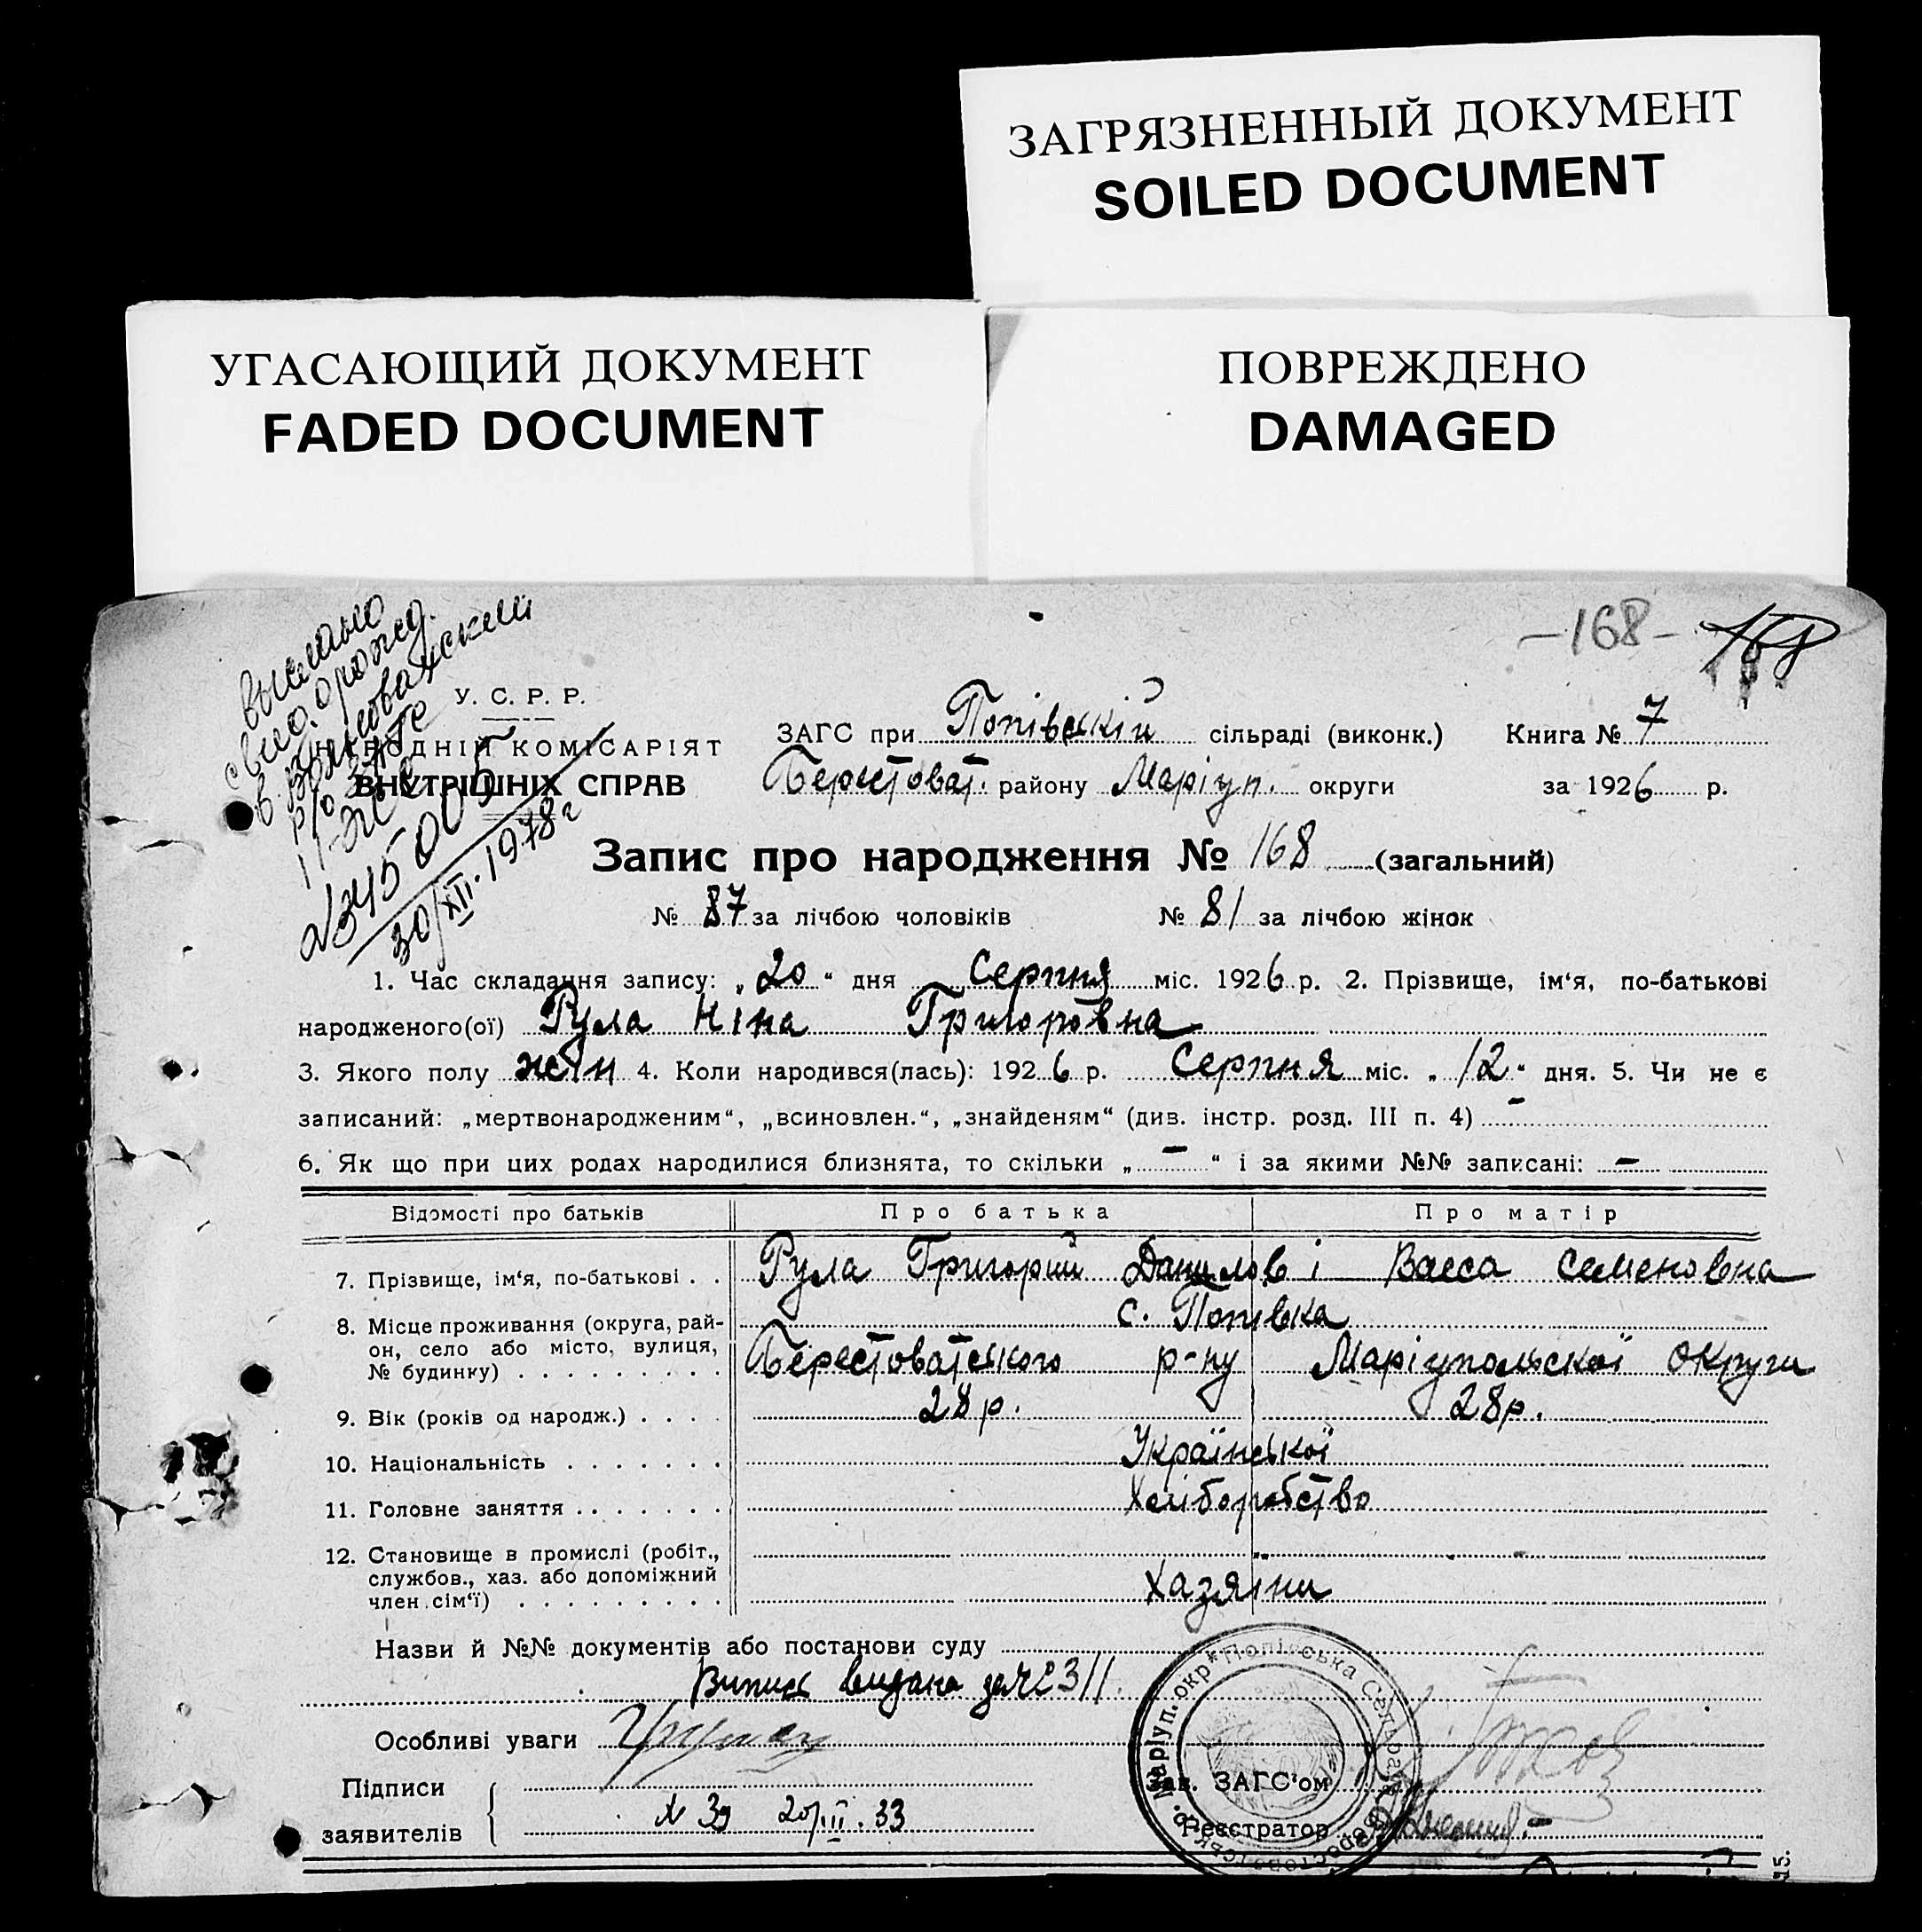 ЗАГРЯЗНЕННЫЙ ДОКУМЕНТ
SOILED DOCUMENT
УГАСАЮЩИЙ ДОКУМЕНТ
FADED DOCUMENT
ПОВРЕЖДЕНО
DAMAGED
-168- 168
выслано
свид. о рожд.
в Волновахский
р/о ЗАГС
11-20
№345005
30/XII.1978г
У. С. Р. Р.
НАРОДНІЙ КОМІСАРІЯТ
ВНУТРІШНІХ СПРАВ
ЗАГС при Попівській сільраді (виконк.) Книга № 7
Берестоват. району Маріуп. округи за 1926 р.
Запис про народження № 168 (загальний)
№ 87 за лічбою чоловіків № 81 за лічбою жінок
1. Час складання запису: „20“ дня Серпня міс. 1926 р. 2. Прізвище, ім‘я, по-батькові
народженого(ої) Рула Ніна Григоровна
3. Якого полу жін 4. Коли народився(лась): 1926 р. Серпня міс. „12“ дня. 5. Чи не є
записаний: „мертвонародженим“, „всиновлен.“, „знайденям“ (див. інстр. розд. III п. 4) -
6. Як що при цих родах народилися близнята, то скільки „-“ і за якими №№ записані: -
Відомості про батьків Про батька Про матір
7. Прізвище, ім‘я, по-батькові . . Рула Григорий Данилов і Васса Семеновна
8. Місце проживання (округа, рай-
он, село або місто, вулиця,
№ будинку) . . . . . . . . .
с. Попівка
Берестоватського р-ну Маріупольської округи
9. Вік (років од народж.) . . . . 28 р. 28 р.
10. Національність . . . . . . . Української
11. Головне заняття . . . . . . . Хліборобство
12. Становище в промислі (робіт.,
службов., хаз. або допоміжний
член сім‘ї) . . . . . . . . .
Хазяїни
Назви й №№ документів або постанови суду
Випись видана за № 2311
Особливі уваги
Підписи
заявителів
№ 39 20/III.33
Зав. ЗАГС‘ом
Реєстратор
Маріуп. окр. * Попівська Сельрада